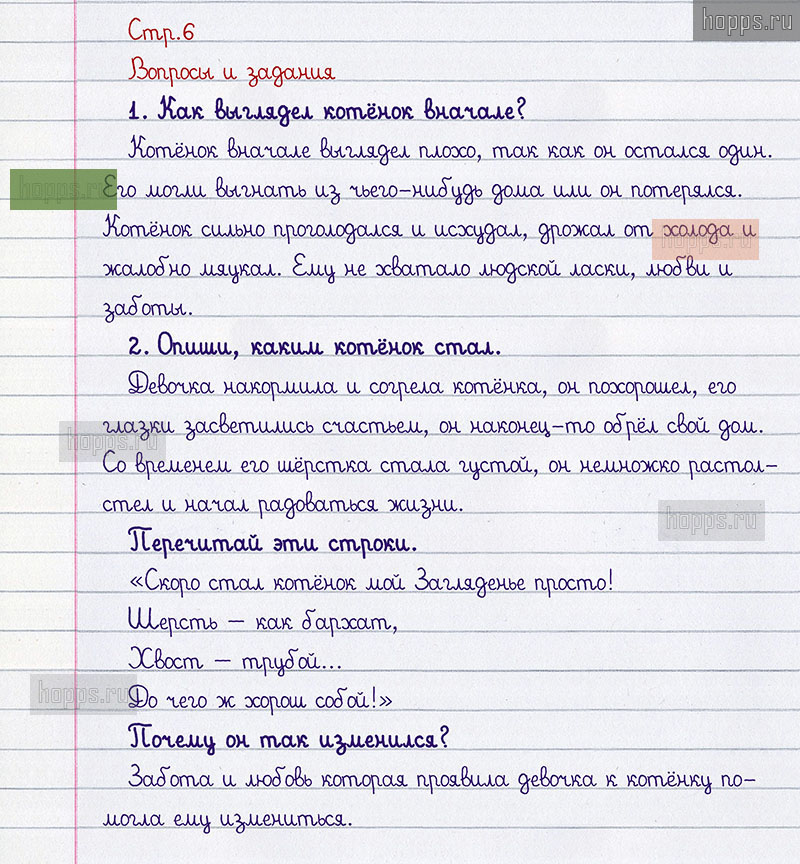 hopps.ru
Стр.6
Вопросы и задания
1. Как выглядел котёнок вначале?
Котёнок вначале выглядел плохо, так как он остался один.
hopps.ru
Его могли выгнать из чьего-нибудь дома или он потерялся.
Котёнок сильно проголодался и исхудал, дрожал от холода и
hopps.ru
жалобно мяукал. Ему не хватало людской ласки, любви и
заботы.
2. Опиши, каким котёнок стал.
Девочка накормила и согрела котёнка, он похорошел, его
глазки засветились счастьем, он наконец-то обрёл свой дом.
hopps.ru
Со временем его шёрстка стала густой, он немножко растол-
стел и начал радоваться жизни.
hopps.ru
Перечитай эти строки.
«Скоро стал котёнок мой Загляденье просто!
Шерсть – как бархат,
Хвост – трубой...
hopps.ru
До чего ж хорош собой!»
Почему он так изменился?
Забота и любовь которая проявила девочка к котёнку по-
могла ему измениться.